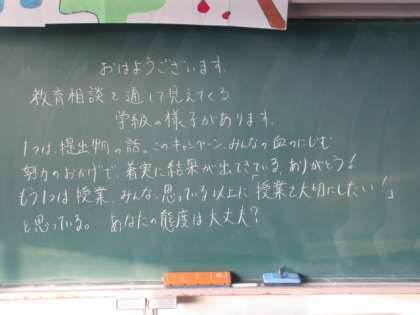 おはようございます。
教育相談を通して見えてくる
学級の様子があります。
1つは、提出物の話。このキャンペーン、みんなの血のにじむ
努力のおかげで、着実に結果が出てきている。ありがとう!
もう1つは授業、みんな、思っている以上に「授業を大切にしたい!」
と思っている。 あなたの態度は大丈夫?